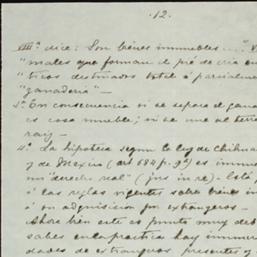 12.
VIII.ª dice: Son bienes inmuebles....." "A
males que forman el pié de cria en
ticos destinados total ó parcialmen
ganaderia" —
3.º En consecuencia si se separa el gana
es cosa mueble; si se une al terre
raiz —
4.º La hipoteca segun la ley de Chihua
y de Mexico (art 684 p. 9ª) es inmue
un "derecho real" (jus in re). Está
á las reglas vigentes sobre bienes in
á su adquisicion por extrangeros —
Ahora bien este es punto muy deb
sabes en la practica hay inmens
dades de extrangeros, presentes y